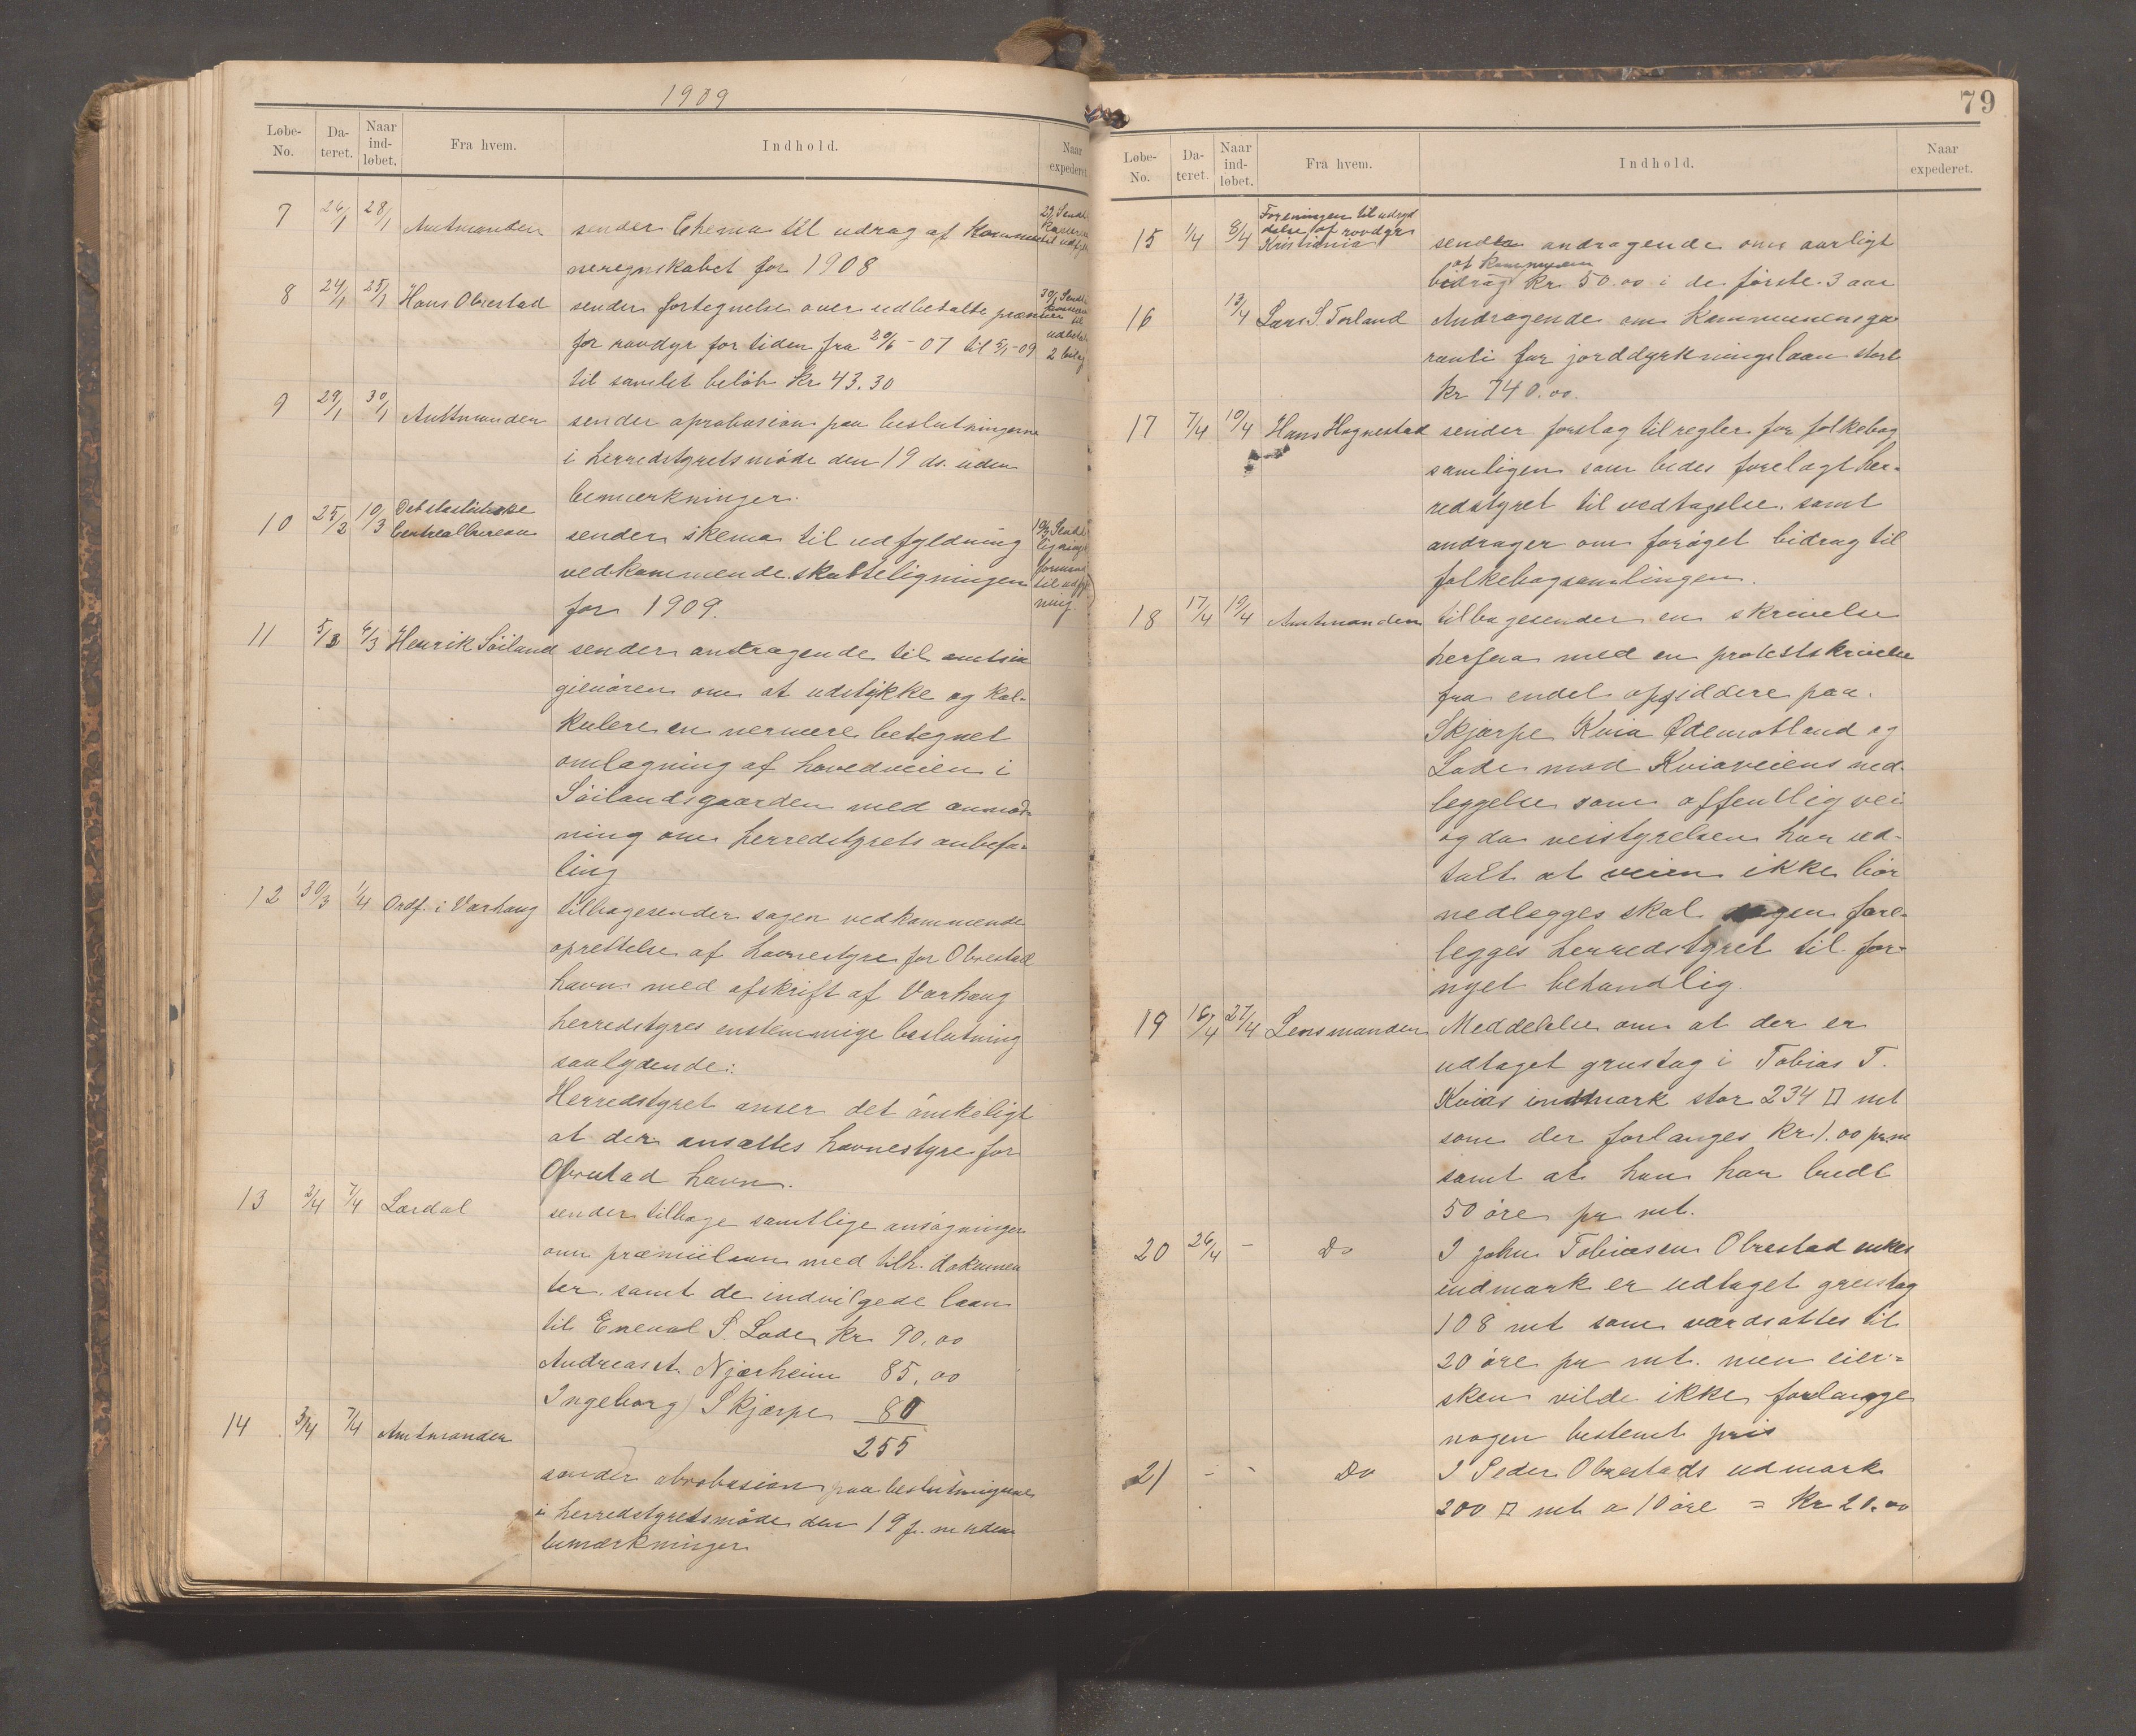 1909
Løbe-No. Da-teret. Naar ind-løbet. Fra hvem. Indhold. Naar expederet.
7 26/1 28/1 Amtmanden sender Chema til udrag af Kommu
neregnskabet for 1908
8 24/1 25/1 Hans Obrestad sender fortegnelse over udbetalte præmier
for rovdyr for tiden fra 20/6 - 07 til 5/1 - 09
til samlet beløb kr 43.30
9 29/1 30/1 Amtmanden sender aprobasion paa beslutningerne
i herredstyretsmøde den 19 ds. uden
bemærkninger.
10 25/2 10/3 Det statistiske
Centralbureau sender skema til udfyldning
vedkommende skatteligningen
for 1909.
11 5/3 6/3 Henrik Söiland sender andragende til amtsin
gieniören om at udstykke og kal-
kulere en nermere betegnet
omlægning af hovedveien i
Söilandsgaarden med anmod-
ning om herredstyrets anbefa-
ling
12 30/3 1/4 Ordf. i Varhaug tilbagesender sagen vedkommende
oprettelse af havnestyre for Obrestad
havn med afskrift af Varhaug
herredstyres enstemmige beslutning
saalydende:
Herredstyret anser det önskeligt
at der ansættes havnestyre for
Obrestad havn.
13 2/4 7/4 Lærdal sender tilbage samtlige ansögninger
om præmielaan med tilh. dokumen
ter. samt de indvilgede laan
til Eneval S. Lode kr 90.00
Andreas A. Njærheim 85.00
Ingeborg Skjærpe 80
255
14 3/4 7/4 Amtmanden
sender abrobasion paa beslutningerne
i herredstyretsmöde den 19 f. m uden
bemærkninger
79
Løbe-No. Da-teret. Naar ind-løbet. Fra hvem. Indhold. Naar expederet.
Foreningen til udryd
delse af rovdyr
15 1/4 8/4 Kristiania sender andragende om aarligt
af kommunen
bidrag kr 50.00 i de förste 3 aar
16 13/4 Lars S. Torland Andragende om Kommunensga
ranti for jorddyrkningslaan stort
kr 740.00.
17 7/4 10/4 Hans Hognestad sender forslag til regler for folkebog
samligen som bedes forelagt her-
redstyret til vedtagelse. samt
andrager om foröget bidrag til
folkebogsamlingen.
18 17/4 19/4 Amtmanden tilbagesender en skrivelse
herfra med en protestskrivelse
fra endel opsiddere paa
Skjærpe Kvia Ødemotland og
Lode mod Kviaveiens ned-
leggelse som offentlig vei
og da veistyrelsen har ud-
talt at veien ikke bör
nedlegges skal sagen fore-
legges herredstyret til for-
nyet behandlig.
19 16/4 27/4 Lensmanden Meddelelse om at der er
udtaget grustag i Tobias T.
Kvias indmark stor 234 □ mt
som der forlanges Kr 1.00 pr. m
samt at han har budt
50 öre pr mt.
20 26/4 - Do I John Tobiasen Obrestad enkes
indmark er udtaget grustag
108 mt som værdsættes til
20 öre pr mt. men eier-
sken vilde ikke forlangge
nogen bestemt pris
21 - - Do I Peder Obrestads udmark
200 □ mt a 10 öre = Kr 20.00